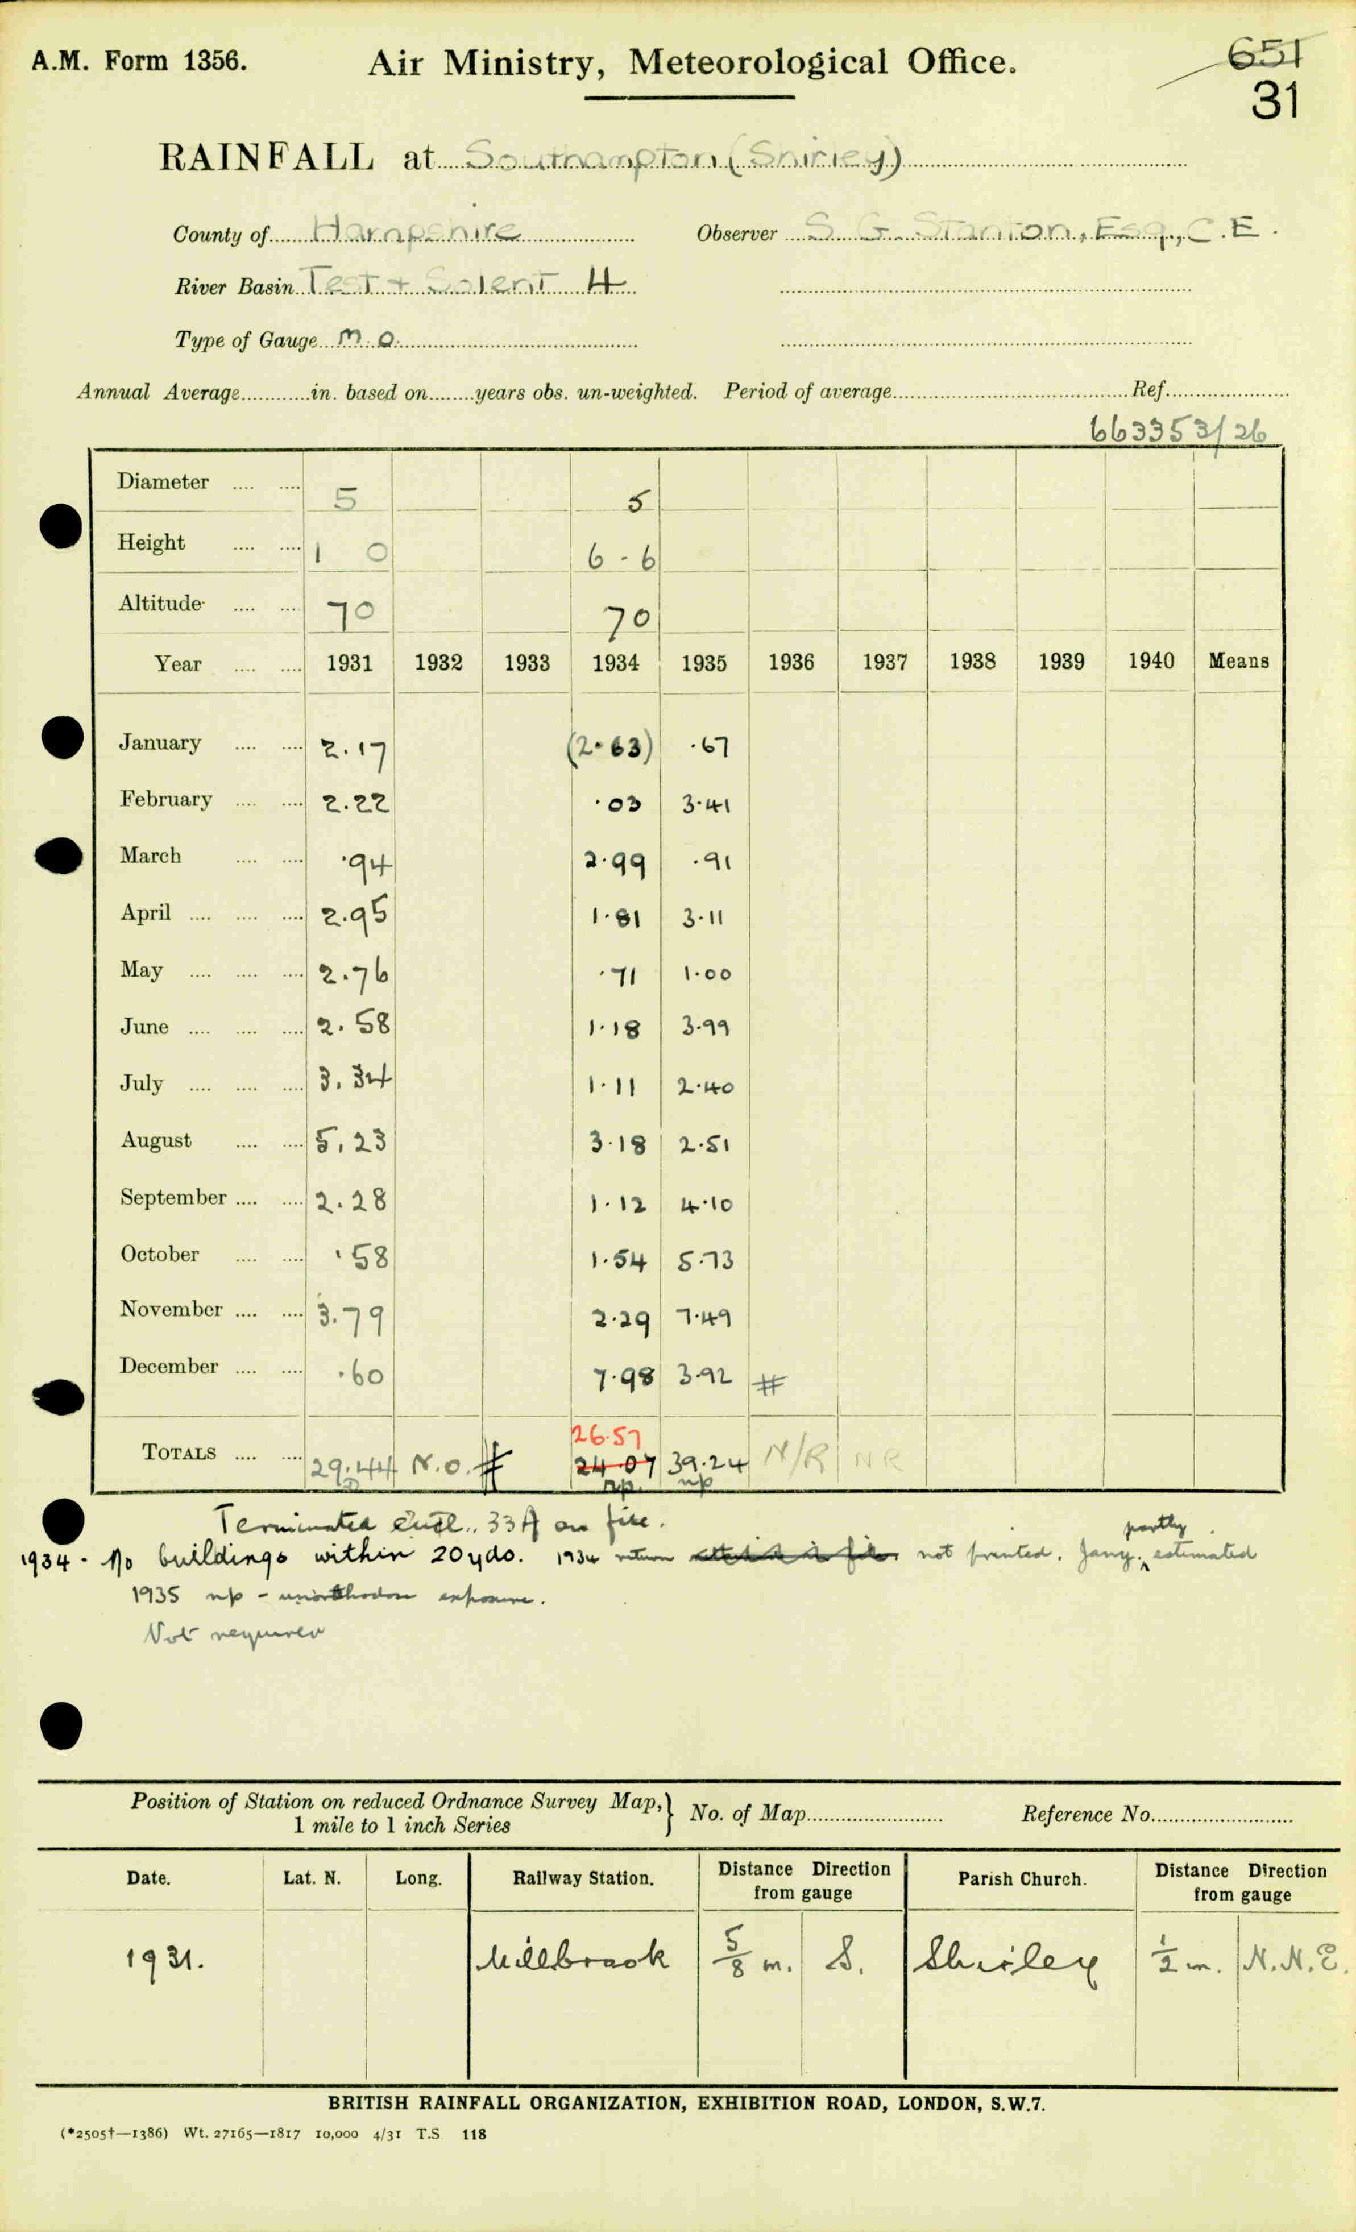 A.M. Form 1356.
Air Ministry, Meteorological Office.
651
31
RAINFALL at Southampton (Shirley)
County of Hampshire Observer S. G. Stanton, Esq., C.E.
River Basin Test + Solent 4
Type of Gauge M.O.
Annual Average in. based on years obs. un-weighted. Period of average Ref.
663353/26
Diameter 5 5
Height 1 0 6 - 6
Altitude 70 70
Year 1931 1932 1933 1934 1935 1936 1937 1938 1939 1940 Means
January 2.17 (2.63) .67
February 2.22 .03 3.41
March .94 2.99 .91
April 2.95 1.81 3.11
May 2.76 .71 1.00
June 2.58 1.18 3.99
July 3.34 1.11 2.40
August 5.23 3.18 2.51
September 2.28 1.12 4.10
October .58 1.54 5.73
November 3.79 2.29 7.49
December .60 7.98 3.92 #
26.57
TOTALS 29.44 N.O. # 24.07 39.24 N/R NR
np. np
Terminated 33A on file.
partly
1934 - No buildings within 20 yds. 1934 return not printed. Jany. ^ estimated
1935 np - unorthodox exposure.
Not required
Position of Station on reduced Ordnance Survey Map, } No. of Map Reference No.
1 mile to 1 inch Series
Date. Lat. N. Long. Railway Station. Distance Direction from gauge Parish Church. Distance Direction from gauge
1931. Millbrook 5/8 m. S. Shirley 1/2 m. N.N.E.
BRITISH RAINFALL ORGANIZATION, EXHIBITION ROAD, LONDON, S.W.7.
(*2505†—1386) Wt. 27165—1817 10,000 4/31 T.S 118